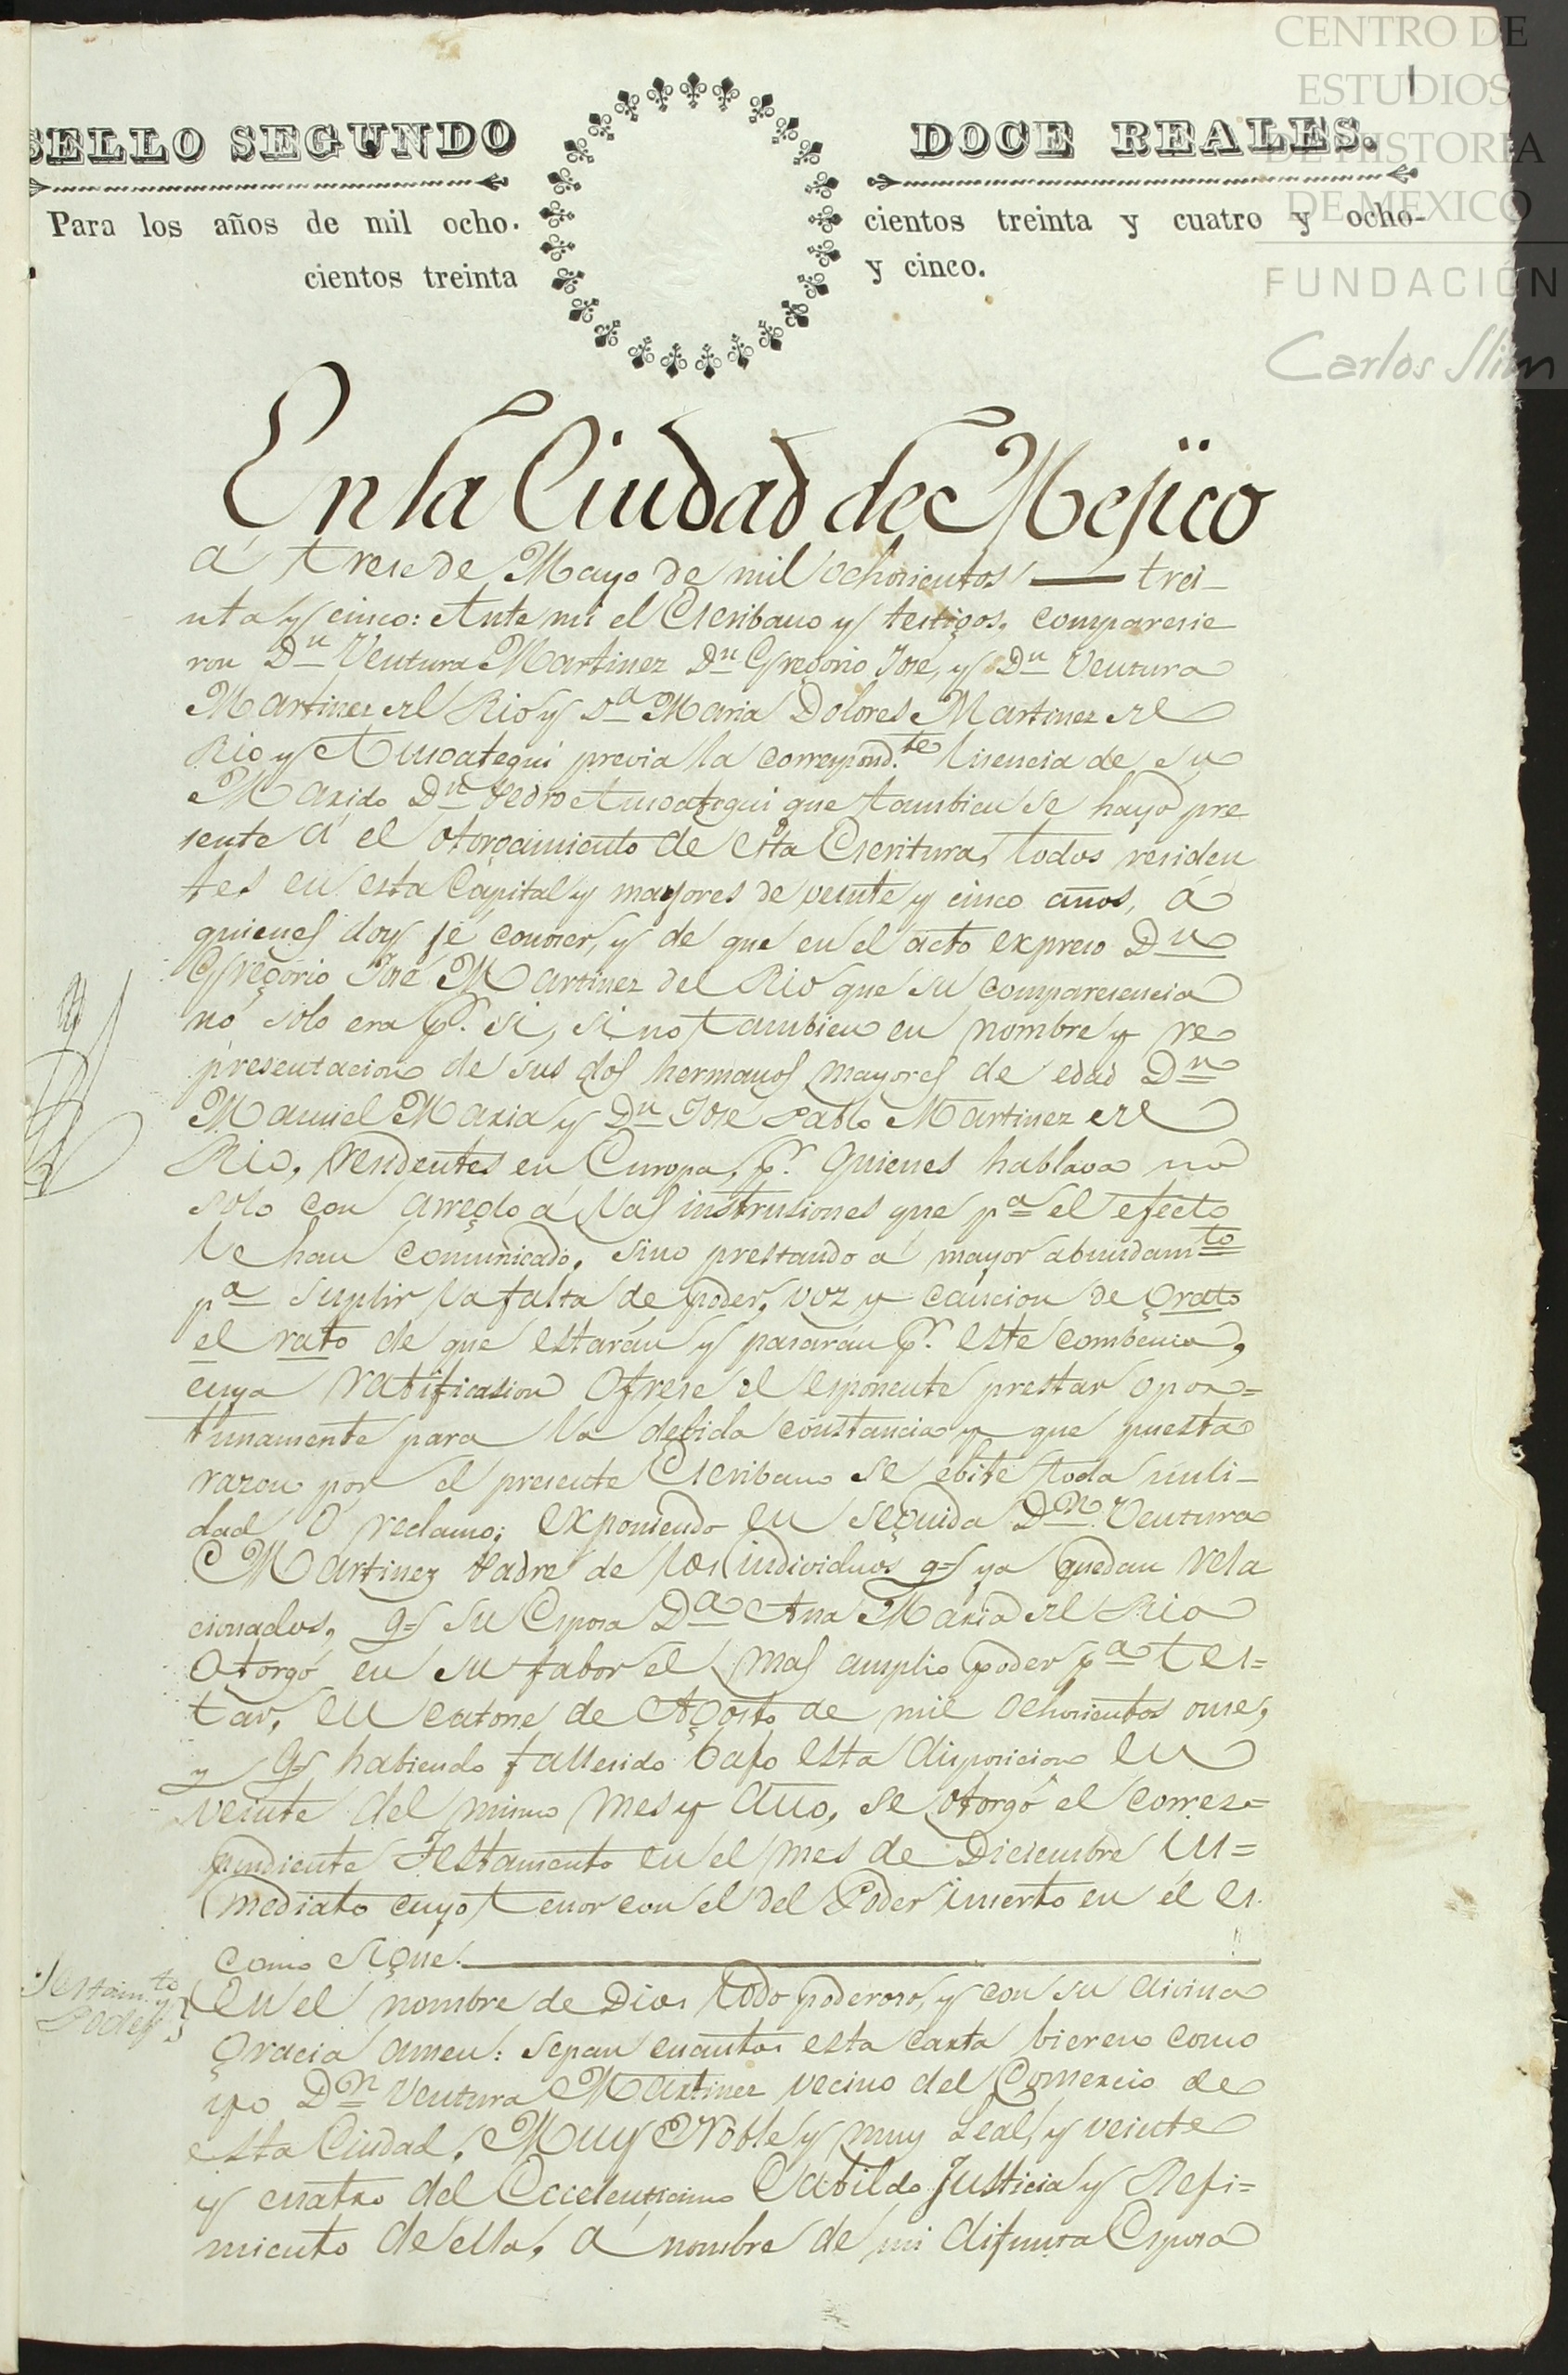 CENTRO DE
ESTUDIOS
DE HISTORIA
DE MEXICO
FUNDACIÓN
Carlos Slim
SELLO SEGUNDO
DOCE REALES.
Para los años de mil ocho-
cientos treinta
cientos treinta y cuatro y ocho-
y cinco.
En la Ciudad de Mejico
á trese de Mayo de mil ochosientos — trei-
nta y cinco: Ante mi el Escribano y testigos, comparesie
ron Dn Ventura Martinez Dn Gregorio José, y Dn Ventura
Martinez del Rio y Da Maria Dolores Martinez del
Rio y previa la correspond.te lisencia de su
Marido Dn Pedro que tambien se hayó pre
sente á el otorgamiento de esta Escritura, todos residen
tes en esta Capital y mayores de veinte y cinco años, á
quienes doy fé conoser, y de que en el acto expreso Dn
Gregorio José Martinez del Rio que su comparesencia
no solo era pr. si, si no tambien en nombre y re
presentacion de sus dos hermanos mayores de edad Dn
Manuel Maria y Dn José Pablo Martinez del
Rio, residentes en Europa, pr. quienes hablava no
solo con arreglo á las instrusiones que pa el efecto
le han comunicado, sino prestando á mayor abundamto
pa suplir la falta de poder, voz y caucion de grato
el rato de que estarán y pasarán pr. este combenio,
cuya ratificasion ofrese el esponente prestar opor=
tunamente para la debida constancia y que puesta
razon por el presente Escribano se ebite toda nuli-
dad ó reclamo; exponiendo en seguida Dn Ventura
Martinez Padre de los individuos q= ya quedan rela
cionados, q= su Esposa Da Ana Maria del Rio
Otorgó en su fabor el mas amplio poder pa tes=
tar, en catorse de Agosto de mil ochosientos onse,
y q= habiendo fallesido bajo esta disposicion en
veinte del mismo mes y año, se otorgó el corres=
pondiente Testamento en el mes de Diciembre in=
mediato cuyo tenor con el del Poder inserto en él es
como sigue.
Testam.to
y
Poder
En el nombre de Dios todo poderoso, y con su divina
gracia amen: sepan cuantos esta carta bieren como
yo Dn Ventura Martinez vecino del Comercio de
esta Ciudad, Muy Noble y muy Leal, y veinte
y cuatro del Ecselentisimo Cabildo Justicia y Reji=
miento de ella, á nombre de mi difunta Esposa